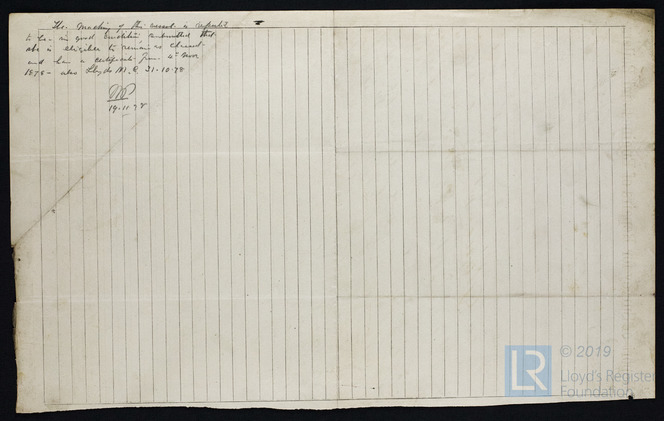 The Machinery of this vessel is reported
to be in good condition, submitted that
she is eligible to remain as classed
and have a certificate from 4th Nov
1878 - also Lloyds M.C. 31-10-78
19.11.78
LR
© 2019
Lloyd's Register
Foundation